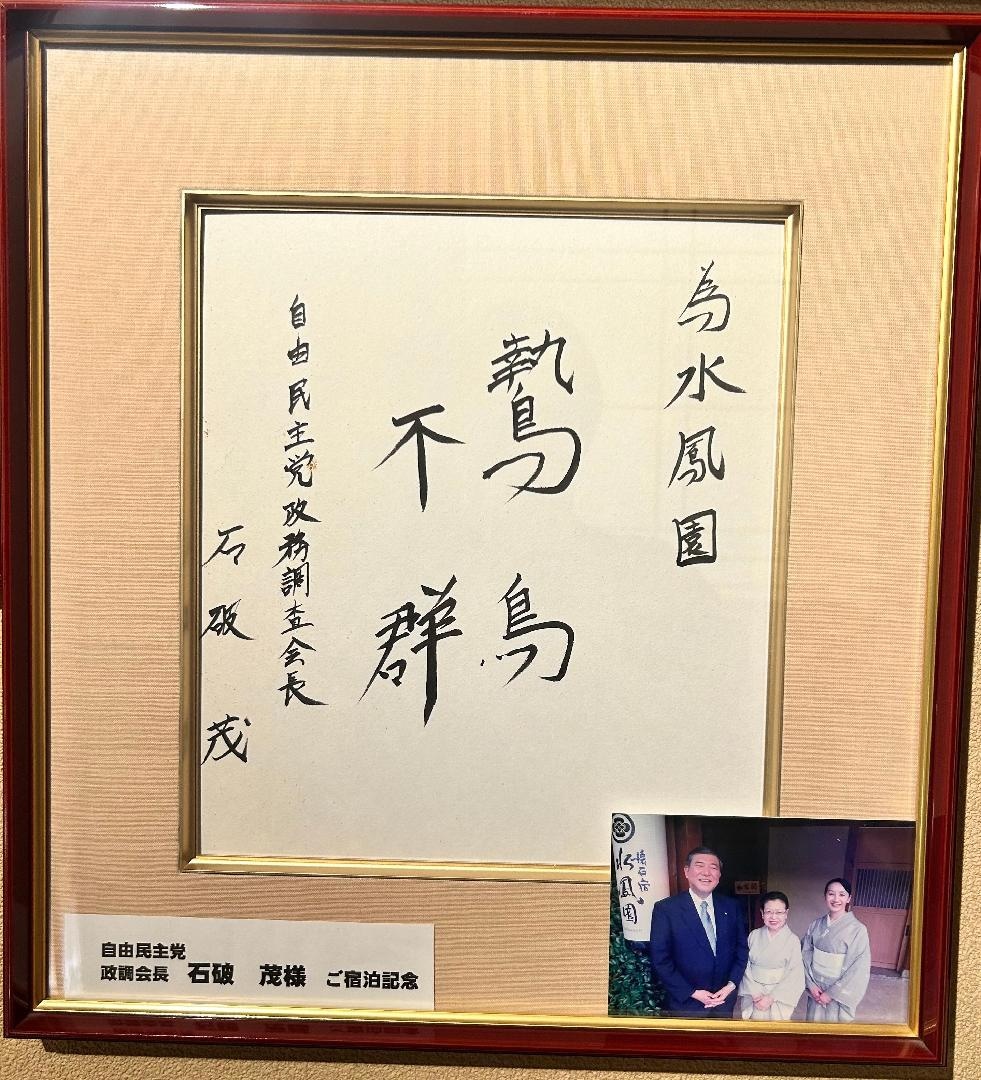 為水鳳園
鷙鳥
不群
自由民主党政務調査会長
石破茂
自由民主党
政調会長 石破 茂様 ご宿泊記念
懐石宿
水鳳園